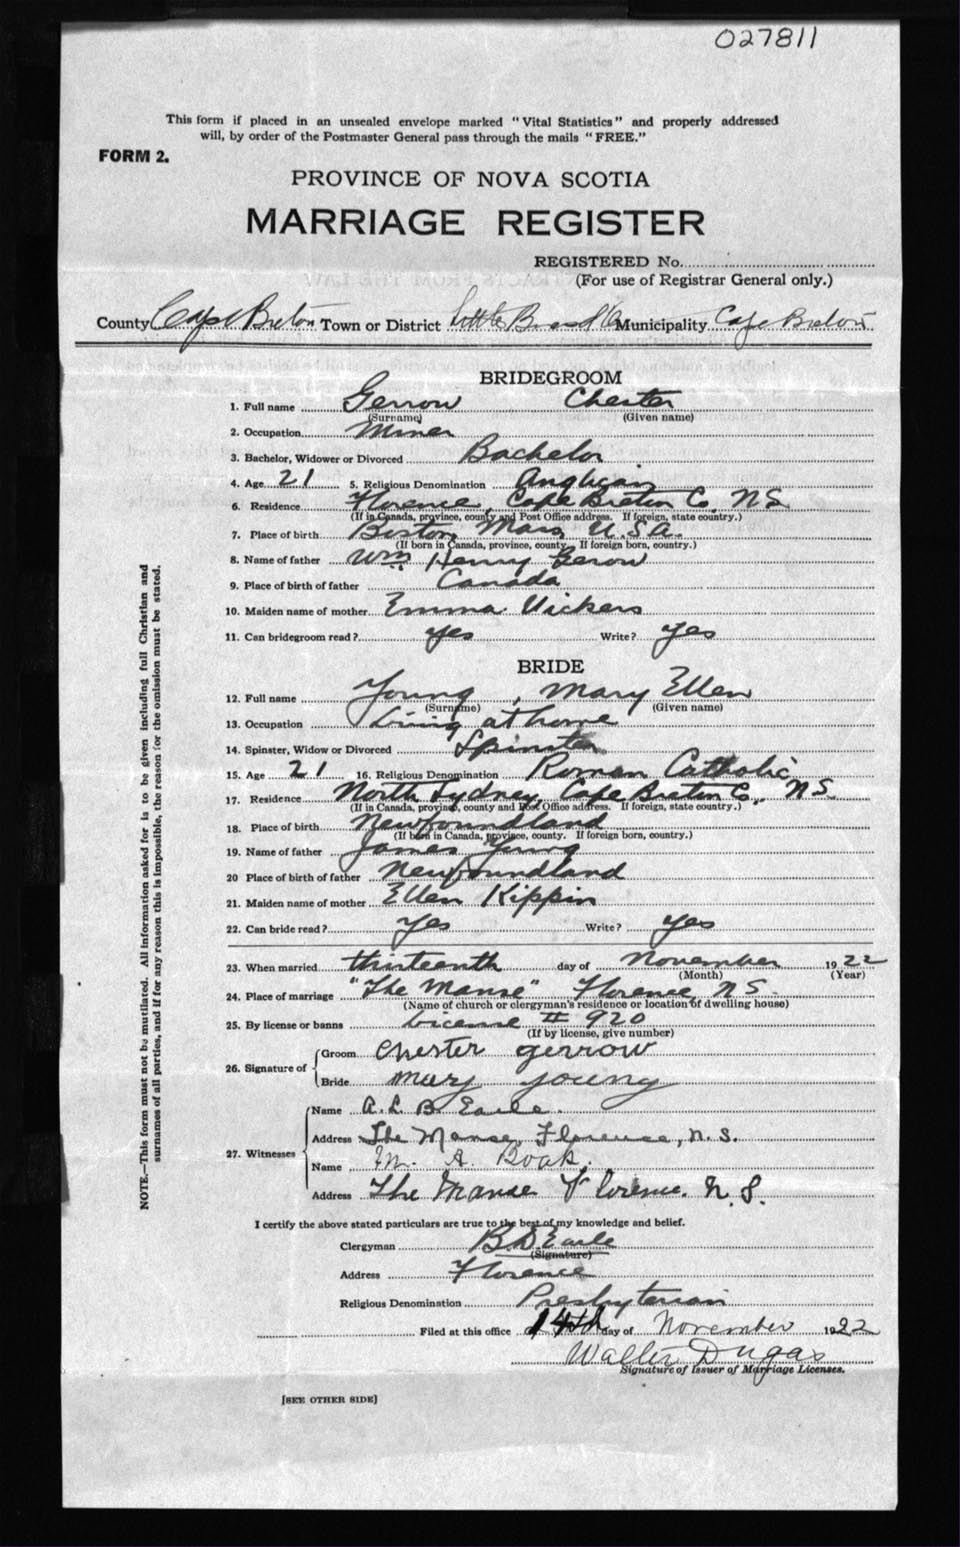 027811
This form if placed in an unsealed envelope marked "Vital Statistics" and properly addressed
will, by order of the Postmaster General pass through the mails "FREE."
FORM 2.
PROVINCE OF NOVA SCOTIA
MARRIAGE REGISTER
REGISTERED No.
(For use of Registrar General only.)
County Cape Breton Town or District Little Bras d'Or Municipality Cape Breton
BRIDEGROOM
1. Full name Gerrow Chester
(Surname) (Given name)
2. Occupation Miner
3. Bachelor, Widower or Divorced Bachelor
4. Age 21 5. Religious Denomination Anglican
6. Residence Florence, Cape Breton Co, N.S.
(If in Canada, province, county and Post Office address. If foreign, state country.)
7. Place of birth Boston, Mass, U.S.A.
(If born in Canada, province, county. If foreign born, country.)
8. Name of father Wm Henry Gerow
9. Place of birth of father Canada
10. Maiden name of mother Emma Vickers
11. Can bridegroom read? Yes Write? Yes
BRIDE
12. Full name Young, Mary Ellen
(Surname) (Given name)
13. Occupation Living at home
14. Spinster, Widow or Divorced Spinster
15. Age 21 16. Religious Denomination Roman Catholic
17. Residence North Sydney, Cape Breton Co., N.S.
(If in Canada, province, county and Post Office address. If foreign, state country.)
18. Place of birth Newfoundland
(If born in Canada, province, county. If foreign born, country.)
19. Name of father James Young
20 Place of birth of father Newfoundland
21. Maiden name of mother Ellen Kippin
22. Can bride read? Yes Write? Yes
23. When married thirteenth day of November 1922
(Month) (Year)
24. Place of marriage "The Manse" Florence, N.S.
(Name of church or clergyman's residence or location of dwelling house)
25. By license or banns License # 920
(If by license, give number)
26. Signature of Groom Chester Gerrow
Bride Mary Young
27. Witnesses Name A. L. B. Earle.
Address The Manse, Florence, N.S.
Name M. A. Boak.
Address The Manse Florence. N.S.
I certify the above stated particulars are true to the best of my knowledge and belief.
Clergyman B.D. Earle
(Signature)
Address Florence
Religious Denomination Presbyterian
Filed at this office 14th day of November 1922
Walter Dugas
Signature of Issuer of Marriage Licenses.
[SEE OTHER SIDE]
NOTE.—This form must not be mutilated. All information asked for is to be given including full Christian and
surnames of all parties, and if for any reason this is impossible, the reason for the omission must be stated.